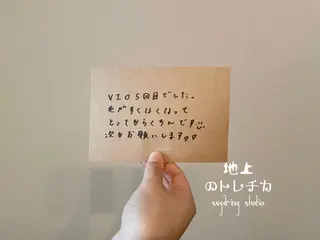 VIO5回目でした。
毛がすくなくなって
とってもらくちんです
次もお願いします♡♡
地上
のトレチカ
sugaring studio